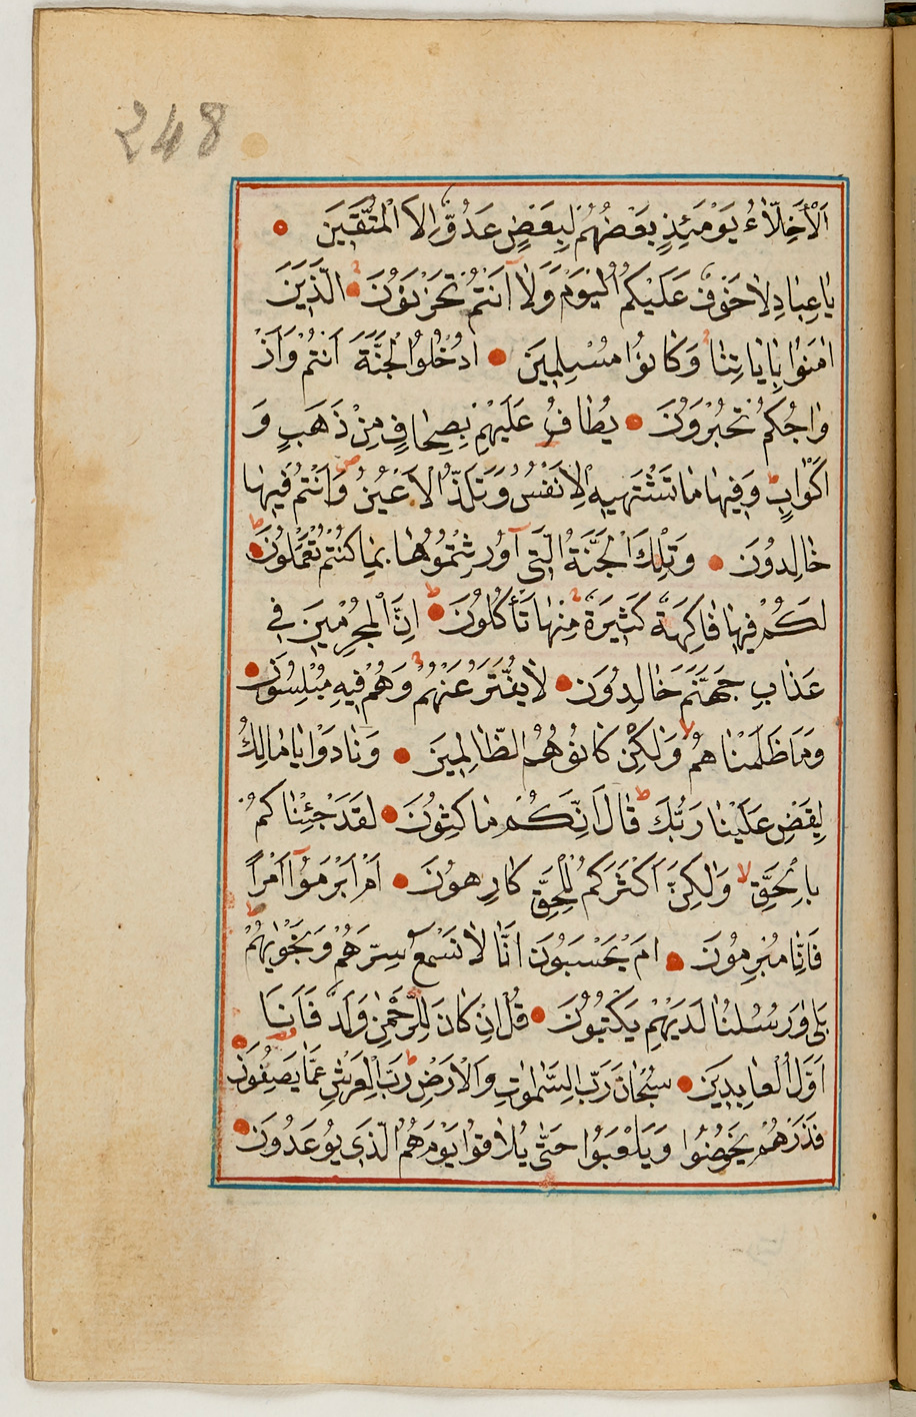 248
اَلْاَخِلَّاءُ يَوْمَئِذٍ بَعْضُهُمْ لِبَعْضٍ عَدُوٌّ اِلَّا الْمُتَّقِينَ
يَاعِبَادِ لَا خَوْفٌ عَلَيْكُمُ الْيَوْمَ وَلَا اَنْتُمْ تَحْزَنُونَ الَّذِينَ
اٰمَنُوا بِاٰيَاتِنَا وَكَانُوا مُسْلِمِينَ اُدْخُلُوا الْجَنَّةَ اَنْتُمْ وَاَزْ
وَاجُكُمْ تُحْبَرُونَ يُطَافُ عَلَيْهِمْ بِصِحَافٍ مِنْ ذَهَبٍ وَ
اَكْوَابٍ وَفِيهَا مَا تَشْتَهِيهِ الْاَنْفُسُ وَتَلَذُّ الْاَعْيُنُ وَاَنْتُمْ فِيهَا
خَالِدُونَ وَتِلْكَ الْجَنَّةُ الَّتِي اُورِثْتُمُوهَا بِمَا كُنْتُمْ تَعْمَلُونَ
لَكُمْ فِيهَا فَاكِهَةٌ كَثِيرَةٌ مِنْهَا تَأْكُلُونَ اِنَّ الْمُجْرِمِينَ فِي
عَذَابِ جَهَنَّمَ خَالِدُونَ لَا يُفَتَّرُ عَنْهُمْ وَهُمْ فِيهِ مُبْلِسُونَ
وَمَا ظَلَمْنَاهُمْ وَلٰكِنْ كَانُوا هُمُ الظَّالِمِينَ وَنَادَوْا يَامَالِكُ
لِيَقْضِ عَلَيْنَا رَبُّكَ قَالَ اِنَّكُمْ مَاكِثُونَ لَقَدْ جِئْنَاكُمْ
بِالْحَقِّ وَلٰكِنَّ اَكْثَرَكُمْ لِلْحَقِّ كَارِهُونَ اَمْ اَبْرَمُوا اَمْرًا
فَاِنَّا مُبْرِمُونَ اَمْ يَحْسَبُونَ اَنَّا لَا نَسْمَعُ سِرَّهُمْ وَنَجْوٰيهُمْ
بَلٰى وَرُسُلُنَا لَدَيْهِمْ يَكْتُبُونَ قُلْ اِنْ كَانَ لِلرَّحْمٰنِ وَلَدٌ فَاَنَا
اَوَّلُ الْعَابِدِينَ سُبْحَانَ رَبِّ السَّمٰوَاتِ وَالْاَرْضِ رَبِّ الْعَرْشِ عَمَّا يَصِفُونَ
فَذَرْهُمْ يَخُوضُوا وَيَلْعَبُوا حَتّٰى يُلَاقُوا يَوْمَهُمُ الَّذِي يُوعَدُونَ